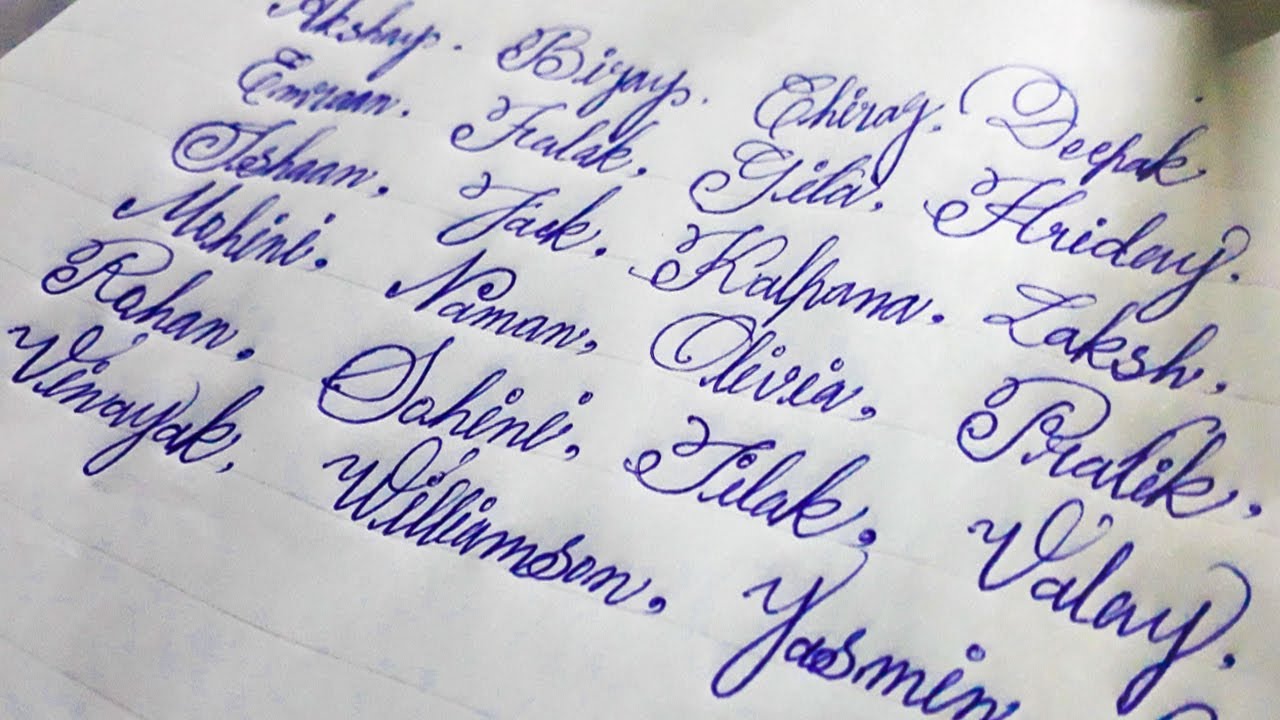 Akshay. Bijay. Chirag. Deepak
Emraan. Falak. Gita. Hriday.
Ishaan. Jack. Kalpana. Laksh.
Mohini. Naman, Olivia, Pratik.
Rohan. Sohini. Tilak. Valay.
Vinayak. Williamson. Yasmin